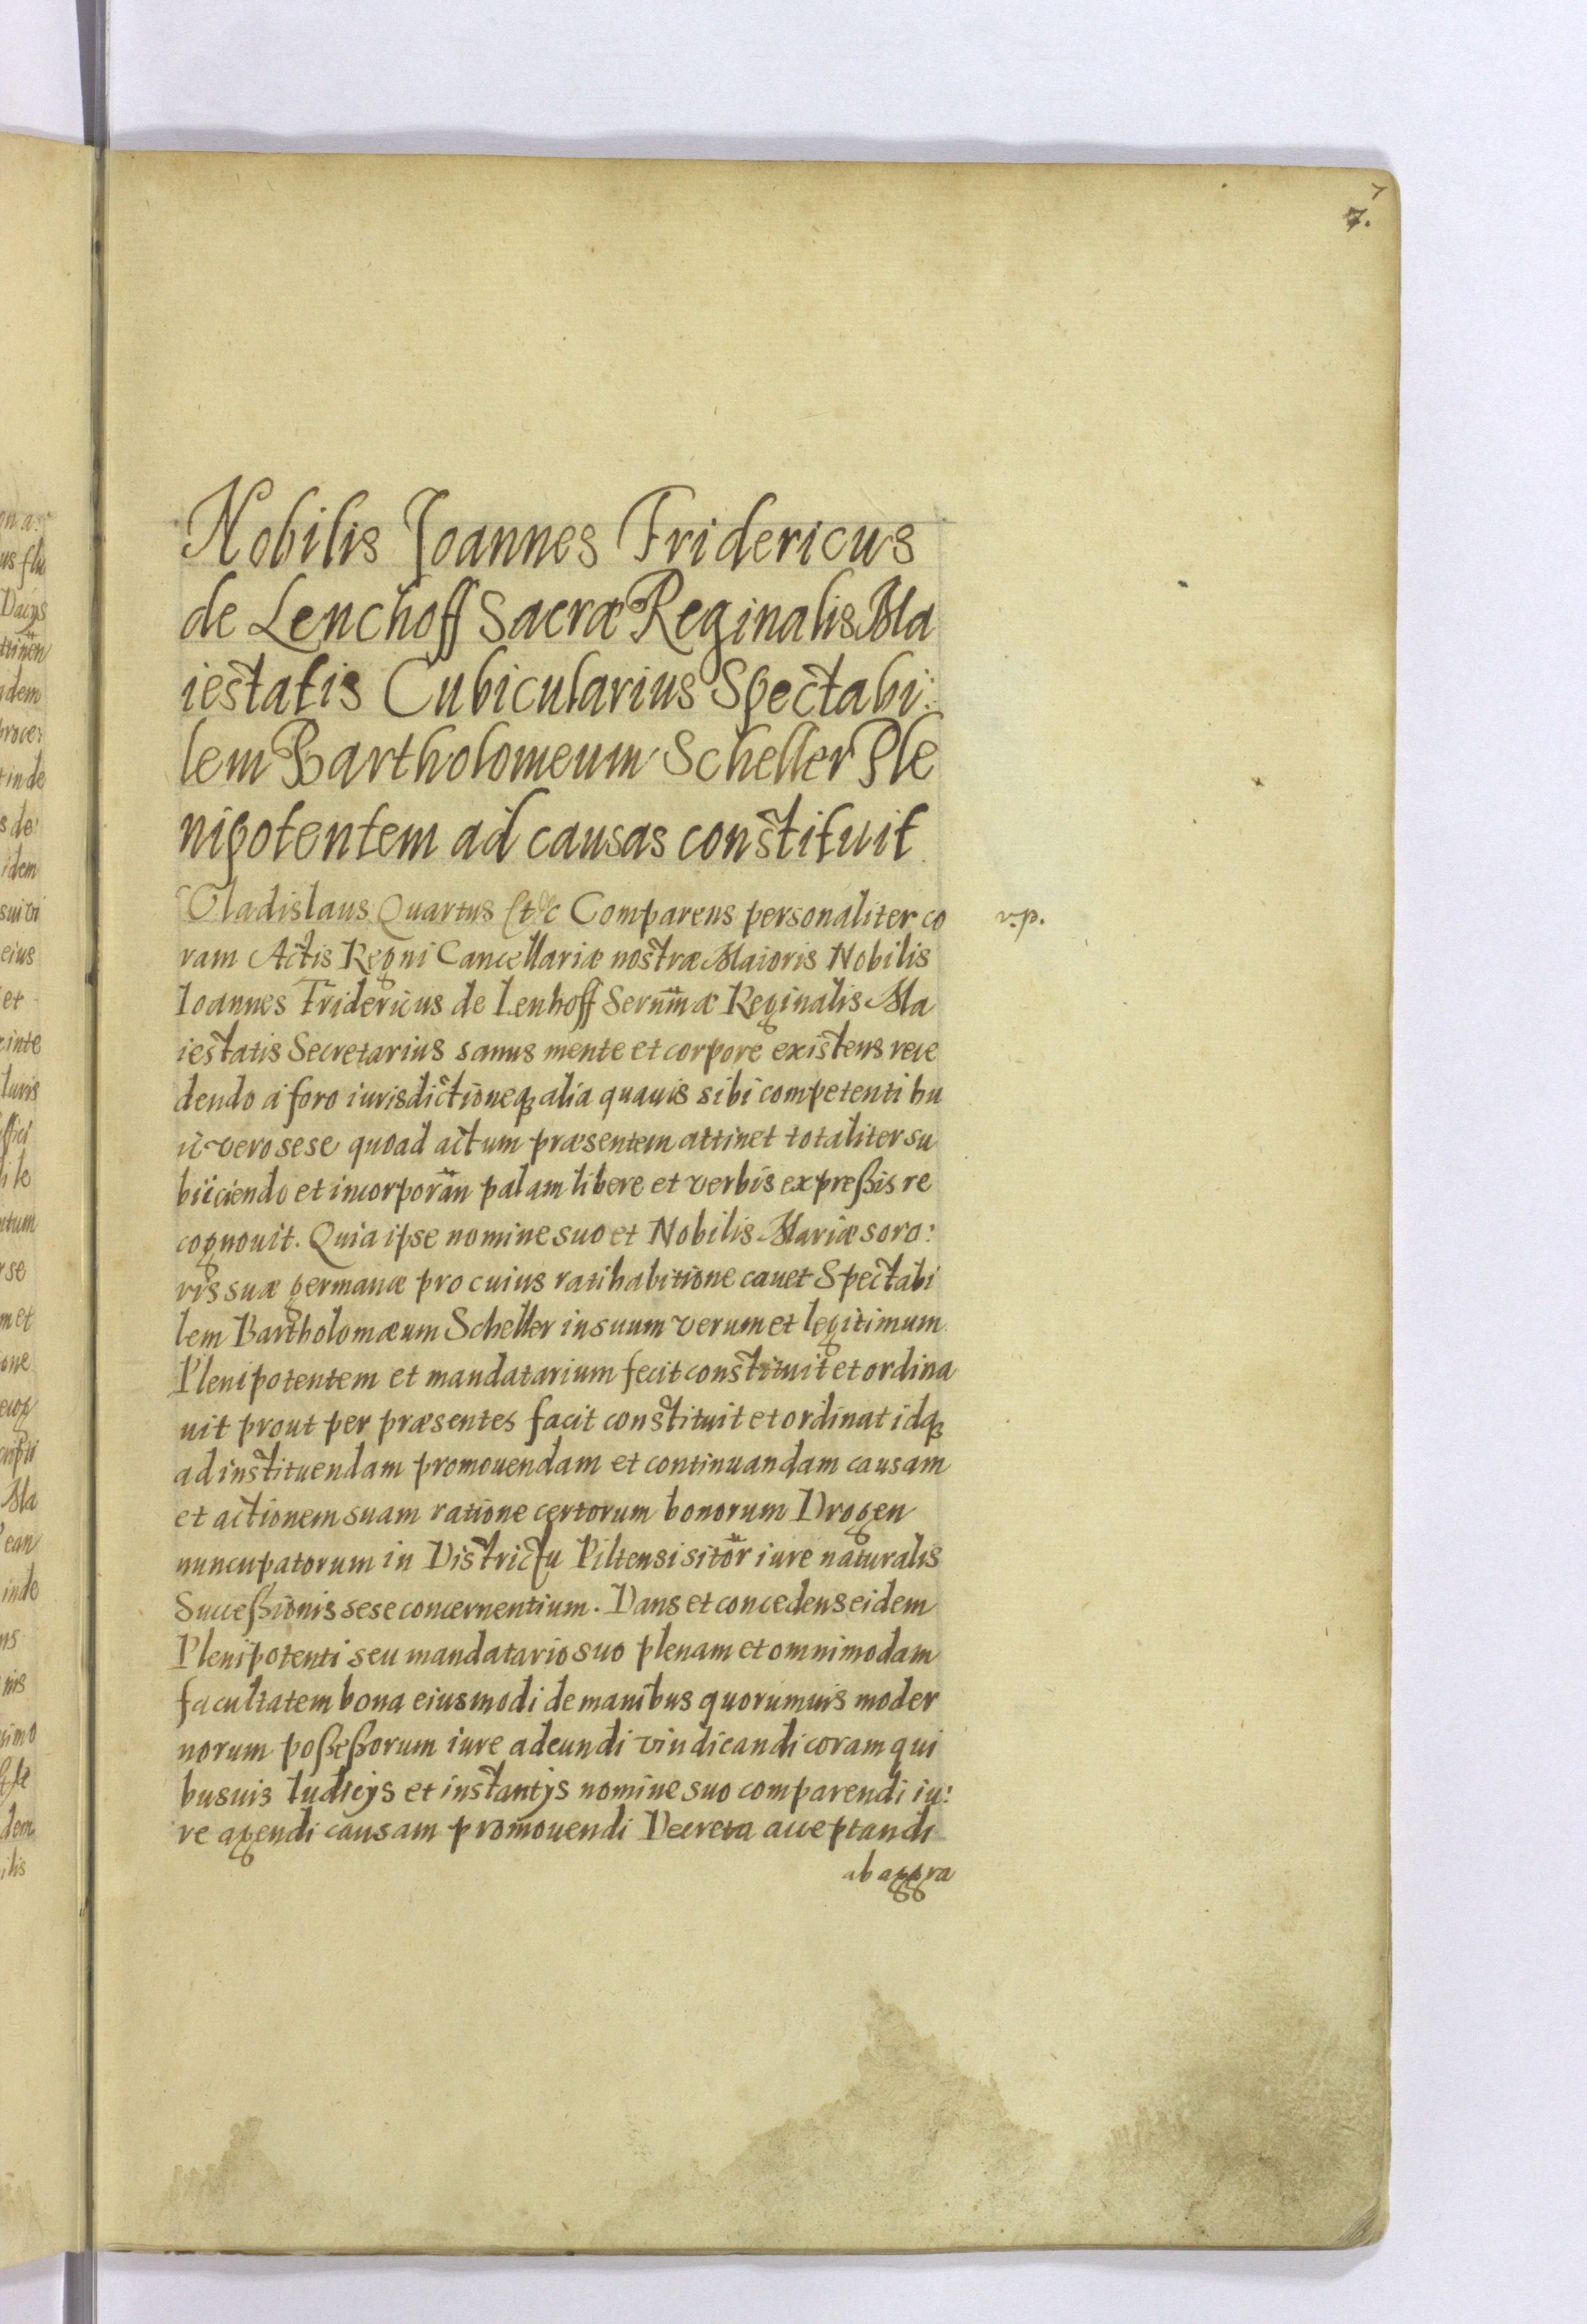 7
7.
Nobilis Joannes Fridericus
de Lenchoff Sacræ Reginalis Ma
iestatis Cubicularius Spectabi:
lem Bartholomeum Scheller Ple
nipotentem ad causas constituit.
Vladislaus Quartus Etc Comparens personaliter co
v.p.
ram Actis Regni Cancellariæ nostræ Maioris Nobilis
Ioannes Fridericus de Lenhoff Sernmæ Reginalis Ma
iestatis Secretarius sanus mente et corpore existens rece
dendo a foro iurisdictioneq alia quauis sibi competenti hu
ic vero sese quoad actum præsentem attinet totaliter su
biiciendo et incorporan palam libere et verbis expreßis re
cognouit. Quia ipse nomine suo et Nobilis Mariæ soro:
ris suæ germanæ pro cuius ratihabitione cauet Spectabi
lem Bartholomæum Scheller in suum verum et legitimum
Plenipotentem et mandatarium fecit constituit et ordina
uit prout per præsentes facit constituit et ordinat idq
ad instituendam promouendam et continuandam causam
et actionem suam ratione certorum bonorum Drogen
nuncupatorum in Districtu Piltensi sitor iure naturalis
Succeßionis sese concernentium. Dans et concedens eidem
Plenipotenti seu mandatario suo plenam et omnimodam
facultatem bona eiusmodi de manibus quorumuis moder
norum poßeßorum iure adeundi vindicandi coram qui
busuis Iudicijs et instantijs nomine suo comparendi iu:
re agendi causam promouendi Decreta acceptandi
ab aggra